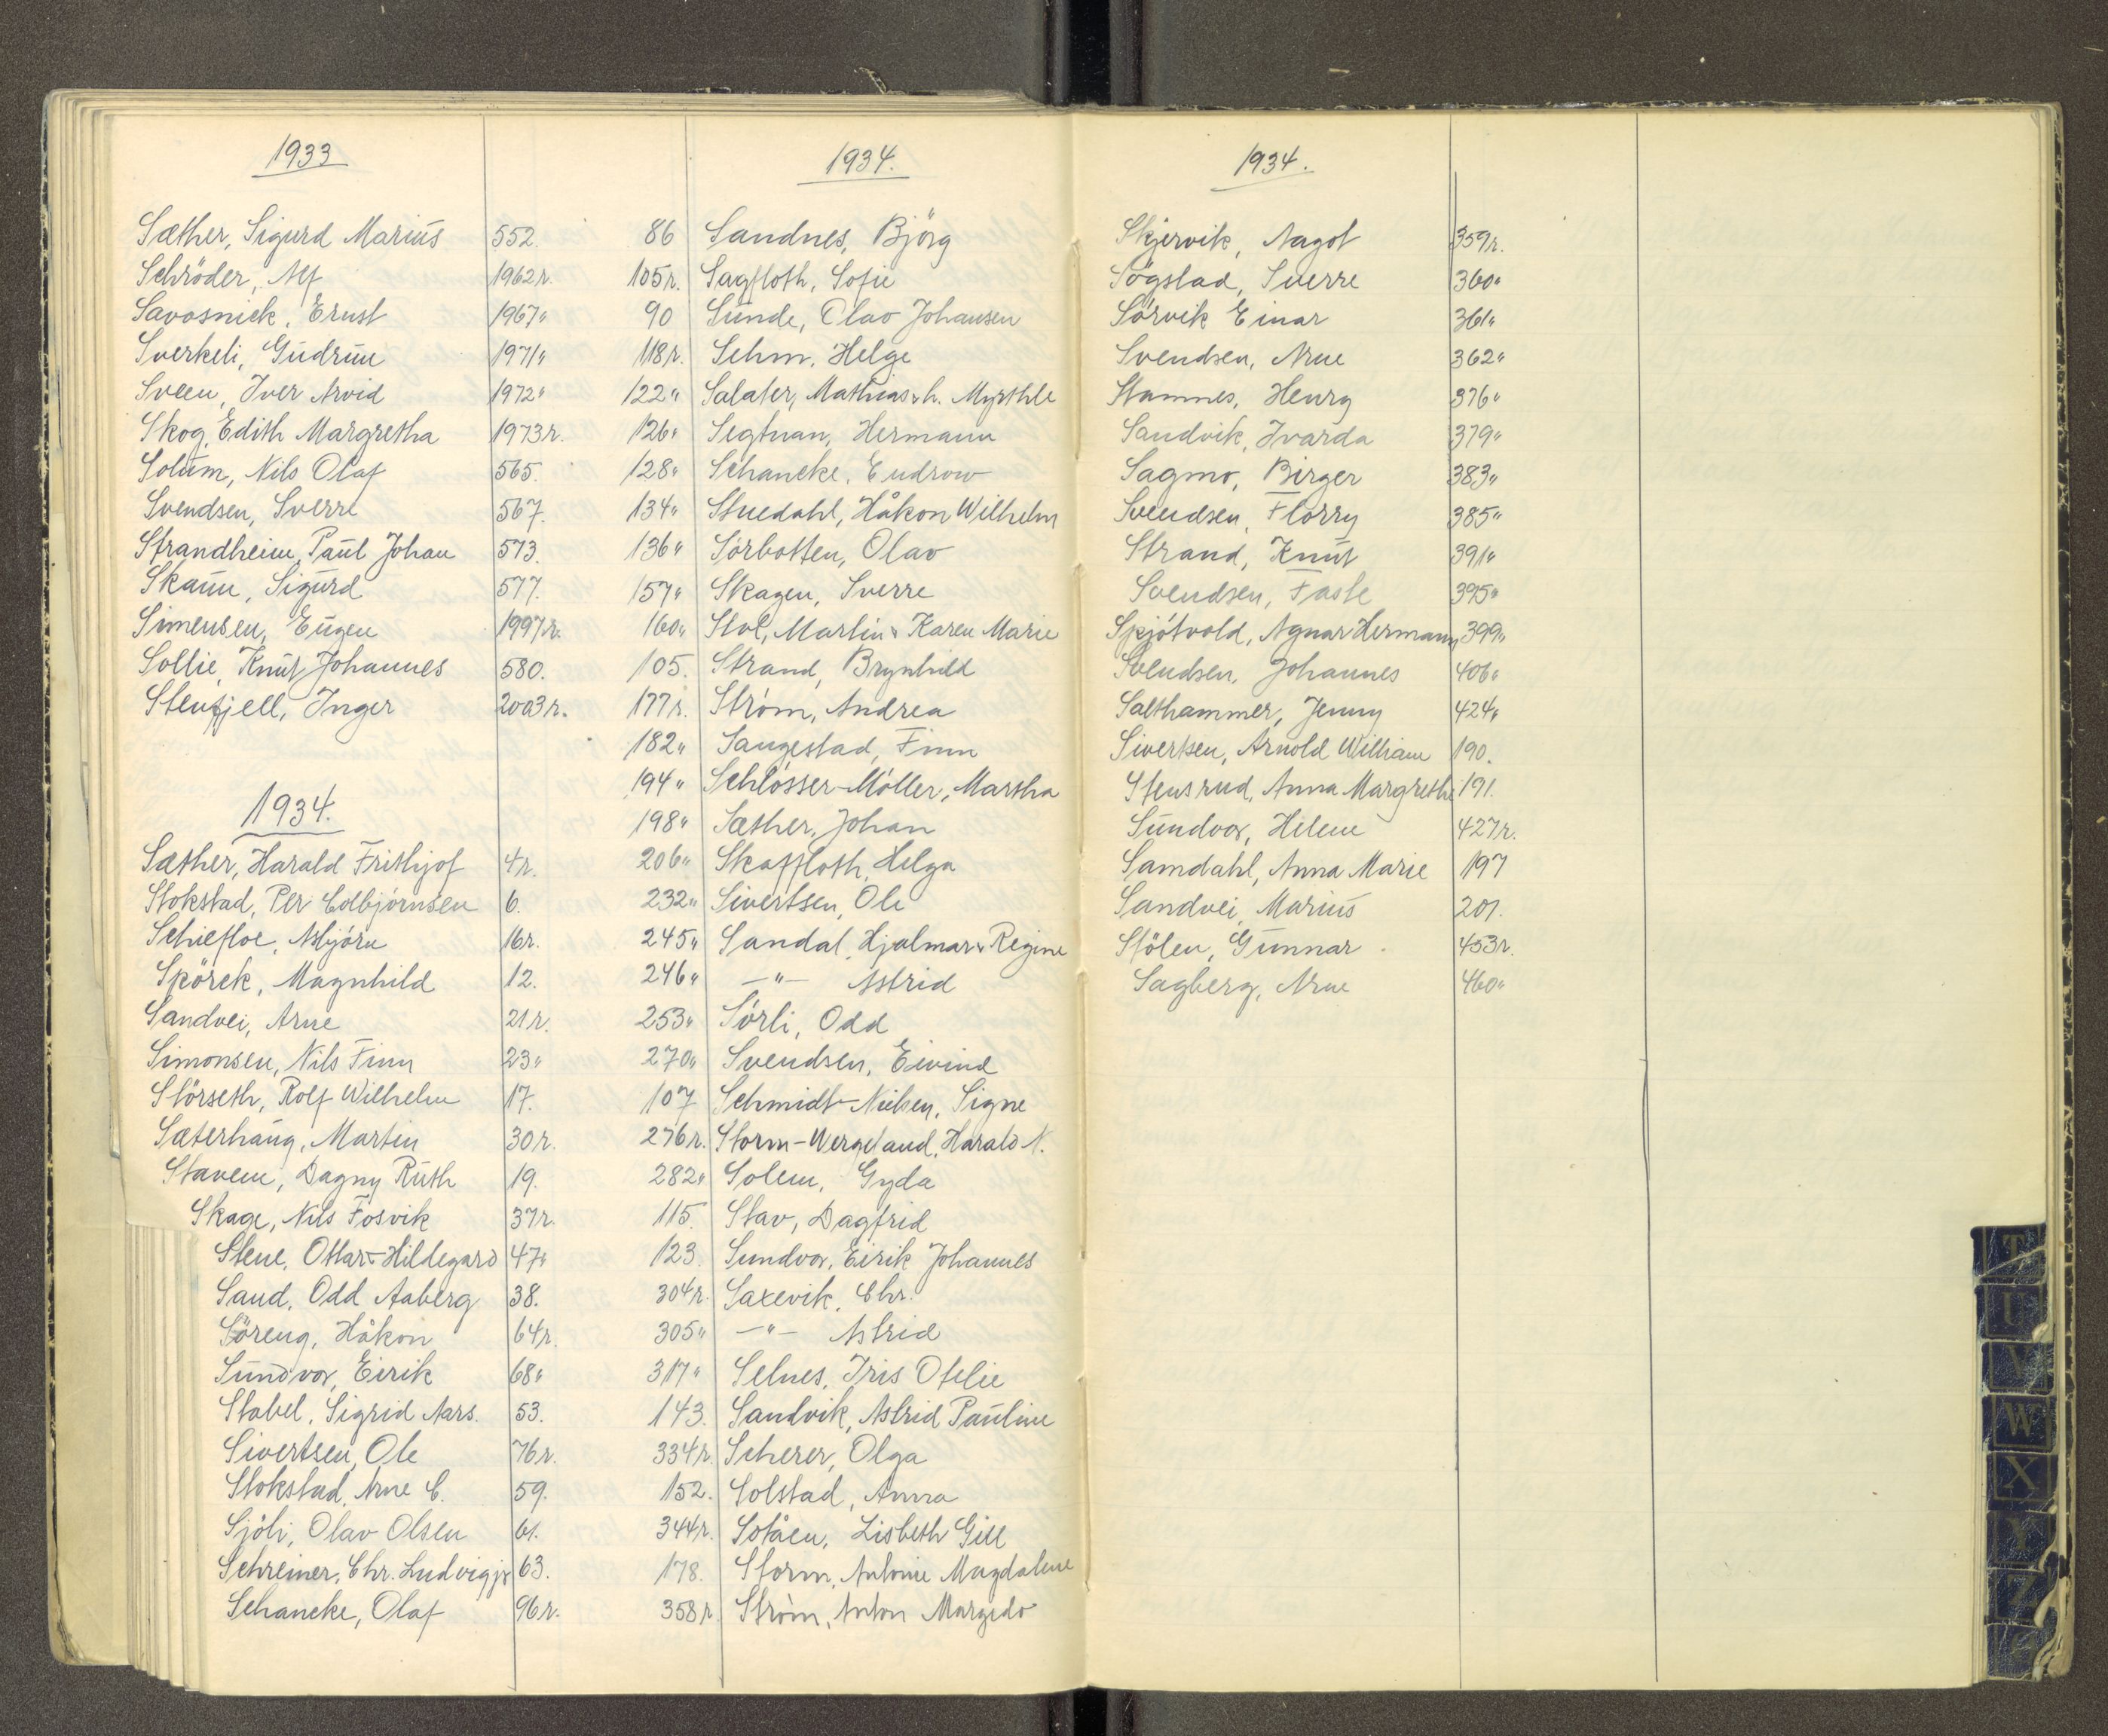 1933
Sæther, Sigurd Marius 552.
Schröder, Alf 1962r.
Savosnick, Ernst 1967"
Sverkeli, Gudrun 1971"
Sveen, Iver Arvid 1972"
Skog, Edith Margretha 1973r.
Solum, Nils Olaf 565.
Svendsen, Sverre 567.
Strandheim, Paul Johan 573.
Skaun, Sigurd 577.
Simensen, Eugen 1997r.
Sollie, Knut Johannes 580.
Stenfjell, Inger 2003r.
1934.
Sæther, Harald Frithjof 4r.
Stokstad, Per Colbjørnsen 6.
Schiefloe, Asbjörn 16r.
Spörck, Magnhild 12.
Sandvei, Arne 21r.
Simonsen, Nils Finn 23"
Störseth, Rolf Wilhelm 17.
Sæterhaug, Martin 30r.
Stavem, Dagny Ruth 19.
Skage, Nils Fosvik 37r.
Stene, Ottar & Hildegard 47"
Sand, Odd Aaberg 38.
Söreng, Håkon 64r.
Sundvor, Eirik 68"
Stabel, Sigrid Aars. 53.
Sivertsen, Ole 76r.
Stokstad, Arne C. 59.
Sjöli, Olav Olsen 61.
Schreiner, Chr. Ludvig jr 63.
Schancke, Olaf 96r.
1934.
86 Sandnes, Björg
105r. Sagfloth, Sofie
90 Sunde, Olav Johansen
118r. Sehm, Helge
122" Salater, Mathias & h. Myrthle
126" Segtnan, Hermann
128" Schancke, Eudrow
134" Stuedahl, Håkon Wilhelm
136" Sörbotten, Olav
157" Skagen, Sverre
160" Stol, Martin & Karen Marie
105. Strand, Brynhild
177r. Ström, Andrea
182" Saugestad, Finn
194" Schlösser-Möller, Martha
198" Sæther, Johan
206" Skaffloth, Helga
232" Sivertsen, Ole
245" Sandal, Hjalmar & Regine
246" —"— Astrid
253" Sörli, Odd
270" Svendsen, Eivind
107 Schmidt-Nielsen, Signe
276r. Storm-Wergeland, Harald N.
282" Solem, Gyda
115. Stav, Dagfrid
123. Sundvor, Eirik Johannes
304r. Saxevik, Chr.
305" —"— Astrid
317" Selnes, Iris Otelie
143. Sandvik, Astrid Pauline
334r. Scherer, Olga
152. Solstad, Anna
344r. Sotåen, Lisbeth Gill
178. Storm, Antonie Magdalene
358r. Ström, Anton Margido
1934.
Skjervik, Aagot 359r.
Sögstad, Sverre 360"
Sörvik Einar 361"
Svendsen, Arne 362"
Stamnes, Henry 376"
Sandvik, Ivarda 379"
Sagmo, Birger 383"
Svendsen, Florry 385"
Strand, Knut 391"
Svendsen, Faste 395"
Spjötvold, Agnar Hermann 399"
Svendsen, Johannes 406"
Salthammer, Jenny 424"
Sivertsen, Arnold William 190.
Stensrud, Anna Margrethe 191.
Sundvor, Helene 427r.
Samdahl, Anna Marie 197
Sandvei, Marius 201.
Stölen, Gunnar 453r.
Sagberg, Arne 460"
T
U
V
W
X
Y
Z